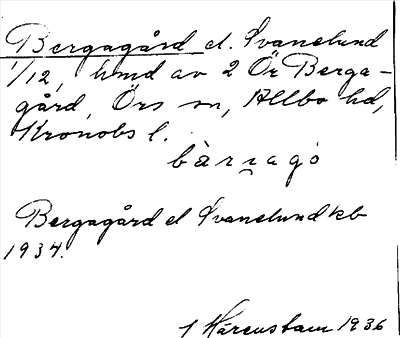 Bergagård el. Svanelund
1/12, hmd av 2 Ör Berga-
gård, Örs sn, Allbo hd,
Kronobs l.
bàrɪagó
Bergagård el Svanelund kb
1934.
1 Härenstam 1936